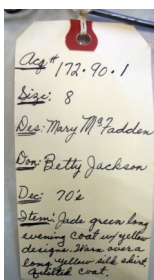 Acq# 172.90.1
Size: 8
Des: Mary McFadden
Don: Betty Jackson
Dec: 70's
Item: Jade green long
evening coat w/yellow
designs. Worn over a
long yellow silk skirt
quilted coat.